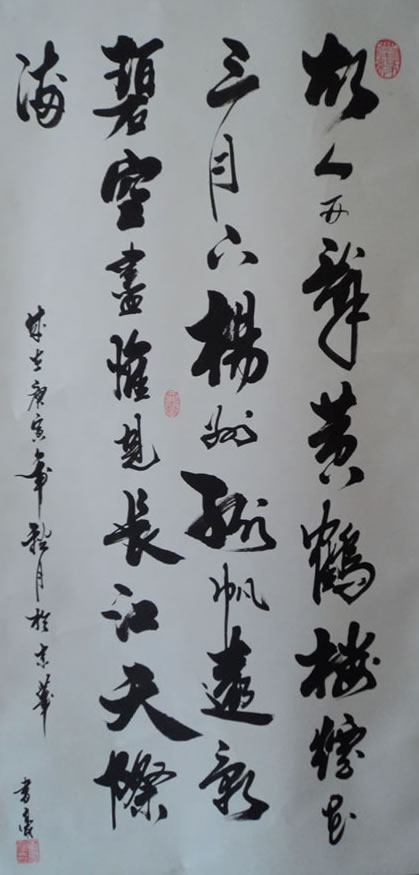 故人西辭黄鶴樓煙花
三月下楊州孤帆遠影
碧空盡惟見長江天際
流
歲在庚寅年秋月於京華